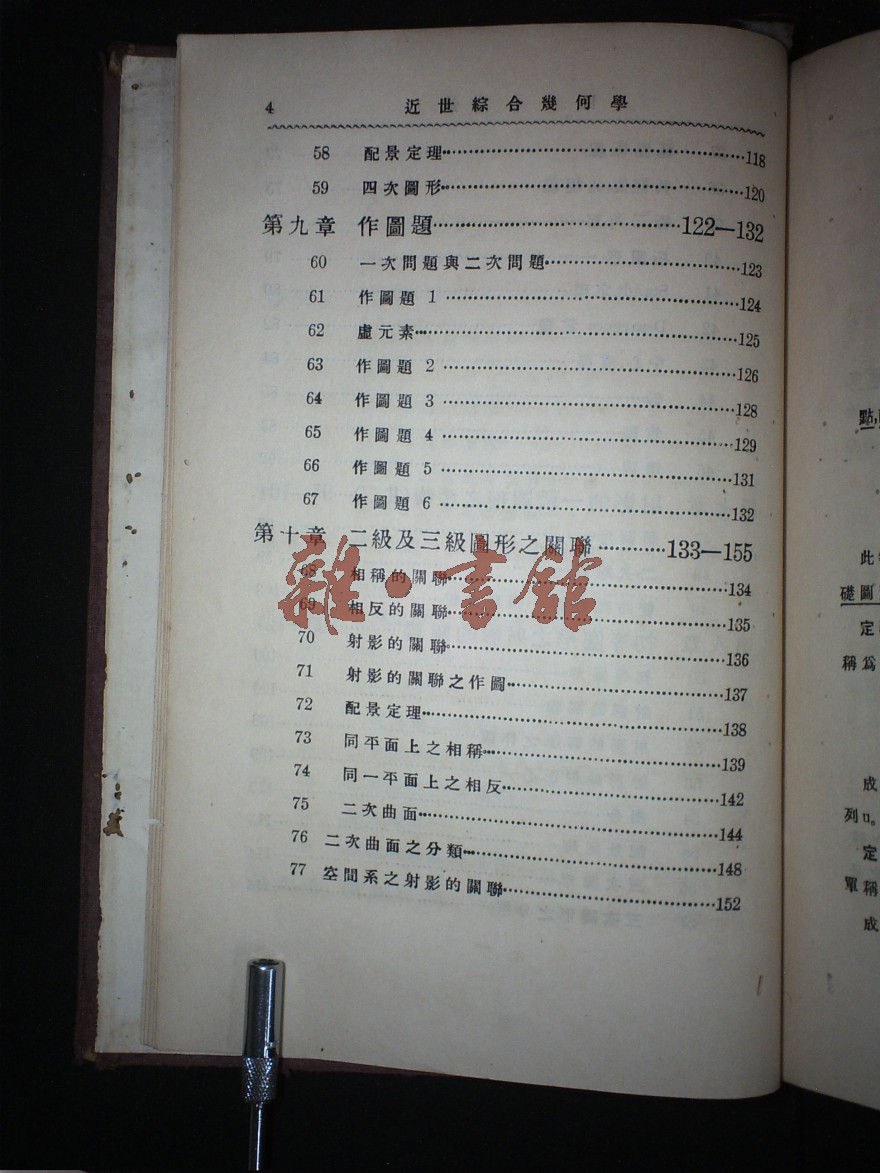 4 近世綜合幾何學
58 配景定理 118
59 四次圖形 120
第九章 作圖題 122—132
60 一次問題與二次問題 123
61 作圖題 1 124
62 虛元素 125
63 作圖題 2 126
64 作圖題 3 128
65 作圖題 4 129
66 作圖題 5 131
67 作圖題 6 132
第十章 二級及三級圖形之關聯 133—155
68 相稱的關聯 134
69 相反的關聯 135
70 射影的關聯 136
71 射影的關聯之作圖 137
72 配景定理 138
73 同平面上之相稱 139
74 同一平面上之相反 142
75 二次曲面 144
76 二次曲面之分類 148
77 空間系之射影的關聯 152
雜·書館
點,
此
礎圖
定
稱爲
成
列u。
定
單稱
成